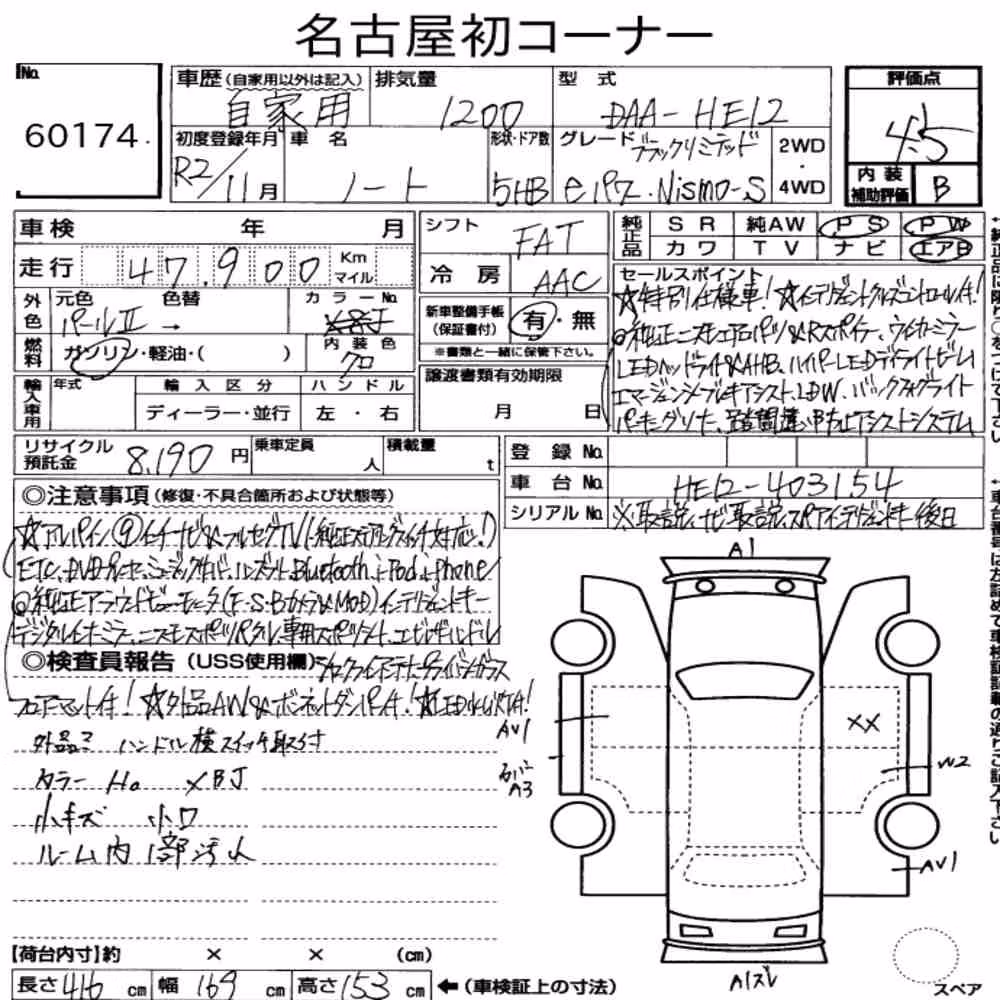 名古屋初コーナー
No.
60174.
車歴(自家用以外は記入)
自家用
初度登録年月
R2/11月
排気量
1200
車名
ノート
形状・ドア数
5HB
型式
DAA-HE12
グレード
ブラックリミテッド
e.パワ.Nismo-S
2WD
・
4WD
評価点
4.5
内装
補助評価
B
車検 年 月
走行 47,900 Km マイル
外色
元色 色替
パールⅡ →
カラーNo.
XBJ
燃料
ガソリン・軽油・( )
内装色
クロ
輸入車用
年式
輸入区分
ディーラー・並行
ハンドル
左・右
シフト
FAT
冷房
AAC
新車整備手帳
(保証書付)
有・無
※書類と一緒に保管下さい。
譲渡書類有効期限
月 日
純正品
SR 純AW PS PW
カワ TV ナビ エアB
セールスポイント
☆特別仕様車!☆インテリジェントクルーズコントロール付!
◎純正ニスモエアロパーツ&Rスポイラー、ウィンカーミラー
LEDヘッドライト&AHB、ハイパーLEDデイライトビーム
エマージェンシーブレーキアシスト、LDW、バックフォグライト
パーキングソナー、踏間違い中止アシストシステム
リサイクル
預託金
8,190円
乗車定員
人
積載量
t
登録No.
車台No.
HE12-403154
シリアルNo.
※取説、ナビ取説、スペアインテリジェントキー後日
◎注意事項(修復・不具合箇所および状態等)
☆アルパイン⑨インチナビ&フルセグTV(純正ステアリングスイッチ対応!)
ETC、DVDプレーヤー、ミュージックサーバー、ハンズフリー、Bluetooth、iPod、iPhone
◎純正アラウンドビューモニター(F・S・Bカメラ&MOD)インテリジェントキー
デジタルインナーミラー、ニスモスポーツペダル、専用スポーツシート、エビレザーハンドル
◎検査員報告(USS使用欄)
シャークフィンアンテナ、プライバシーガラス
フロアマット付!☆外品AW&ボンネットダンパー付!☆LED
外品 ハンドル横スイッチ取付
カラーNo XBJ
小キズ 小凹
ルーム内1部汚れ
【荷台内寸】約 × × (cm)
長さ416cm 幅169cm 高さ153cm ←(車検証上の寸法)
A1
AV1
カバー
A3
XX
W2
AV1
A1ズレ
スペア